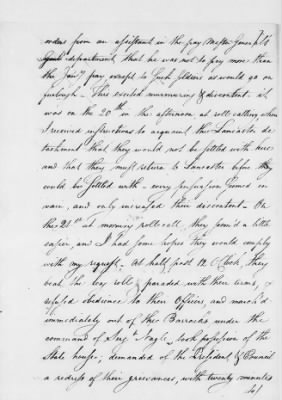 orders from an assistant in the pay Master General's
department that he was not to pay more than
the Jany pay except to such soldiers as would go on
furlough - This excited murmuring & discontent. it
was on the 20th in the afternoon at roll calling when
I received instructions to acquaint the Lancaster de
tachment that they would not be settled with here
and that they must return to Lancaster before they
could be settled with - every perswasion seemed in
vain, and only increased their discontent - On
the 21st at morning roll-call, they seem'd a little
easier, and I had some hopes they would comply
with my request. At half past 12 O'Clock, they
beat the long roll & paraded with their arms,
refused obedience to their Officers, and march'd
immediately out of the Barracks under the
command of Serjt Nagle, took possession of the
State house; demanded of the President & Council
a redress of their grievances, with twenty minutes